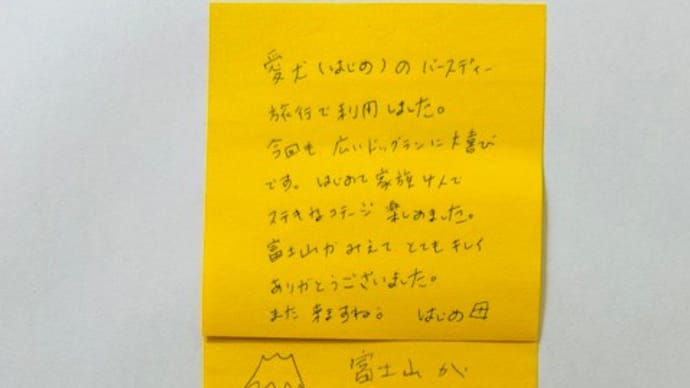 愛犬(はじめ)の バースディー
旅行で利用しました。
今回も 広いドッグランに大喜び
です。はじめて家族4人で
ステキなコテージ 楽しめました。
富士山がみえて とてもキレイ
ありがとうございました。
また 来ますね。 はじめ母
富士山が